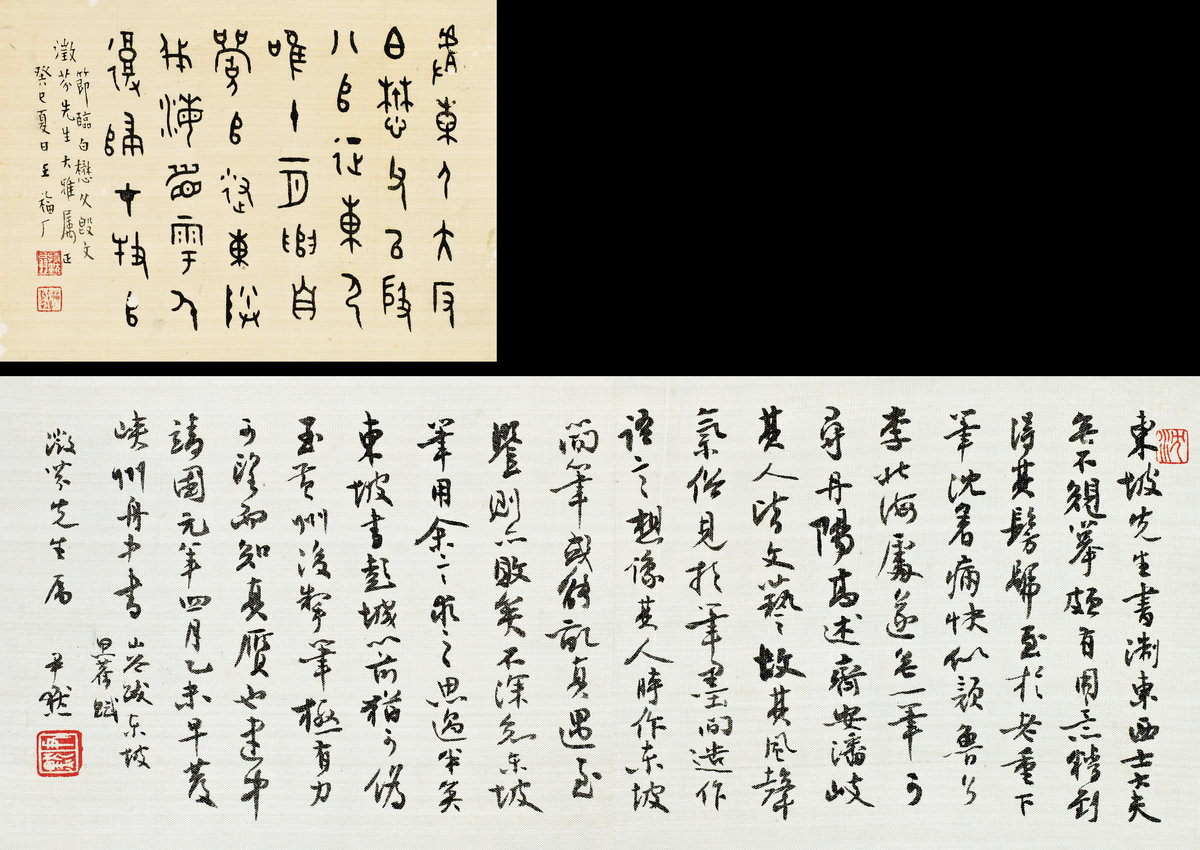 東尸大反
白懋父以殷
八𠂤征東尸
唯十一月遣自
𠂤述東陕
伐海眉雩厥
復歸才牧𠂤
節臨白懋父𣪘文
澂芬先生大雅屬正
癸巳夏日王福厂
沈
東坡先生書浙東西士大夫
無不規摹頗有用意精到
得其髣髴至於老重下
筆沈著痛快似顏魯公
李北海處遂無一筆可
尋丹陽高述齊安潘岐
其人皆文藝故其風聲
氣俗見於筆墨間造作
語言想像其人時作東坡
簡筆或能亂真遇至
鑒則亦敗矣不深知東坡
筆用余言求之思過半矣
東坡書彭城以前猶可偽
至黃州後掣筆極有力
可望而知真贋也建中
靖國元年四月乙未早發
峽州舟中書 山谷跋東坡
思舊賦
澂芬先生屬 尹默